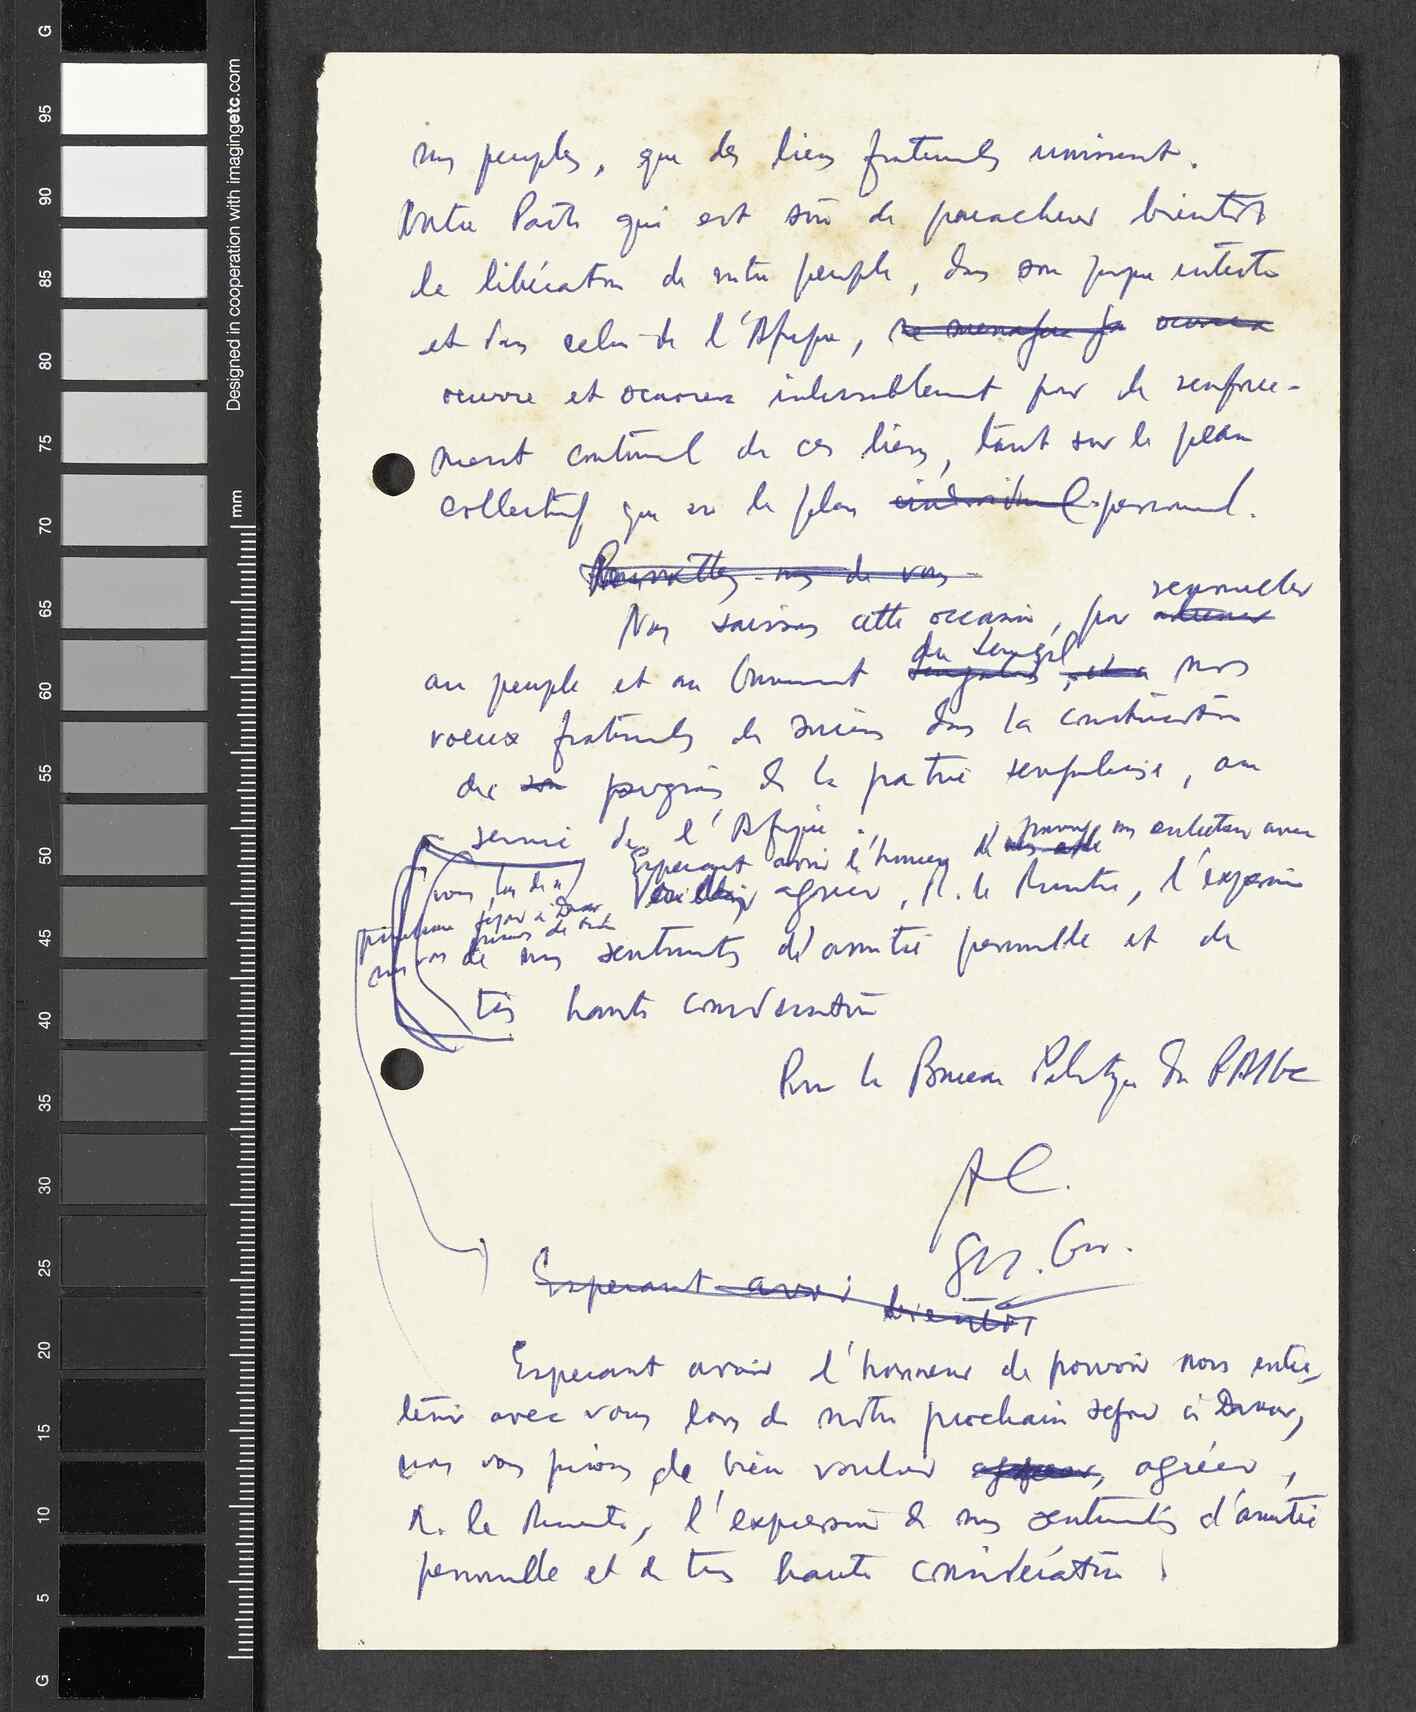 nos peuples, que des liens fraternels unissent.
Notre Parti qui est sûr de parachever bientôt
la libération de notre peuple, dans son propre intérêt
et dans celui de l'Afrique,
oeuvre et oeuvrera inlassablement pour le renforce-
ment continuel de ces liens, tant sur le plan
collectif que sur le plan individuel personnel.
Permettez-nous de vous
renouveler
Nous saisissons cette occasion, pour adresser
du Sénégal
au peuple et au Gouvernement sénégalais, et à nos
voeux fraternels de succès dans la construction
du son progrès de la patrie sénégalaise, au
service de l'Afrique.
Esperant avoir l'honneur de pouvoir nos entretenir avec
vous, lors de n/
Veuillez agréer, M. le Ministre, l'expression
prochain séjour à Dakar
nous vous prions de bien
de nos sentiments d'amitié personnelle et de
très haute considération
Pour le Bureau Politique du PAIGC
AC.
Sec. Gén.
Esperant avoir bientôt
Esperant avoir l'honneur de pouvoir nous entre-
tenir avec vous lors de notre prochain séjour à Dakar,
nous vous prions de bien vouloir agréer, agréer,
M. le Ministre, l'expression de nos sentiments d'amitié
personnelle et de très haute considération
G
95
90
85
80
75
70
65
60
55
50
45
40
35
30
25
20
15
10
5
G
Designed in cooperation with imagingetc.com
mm